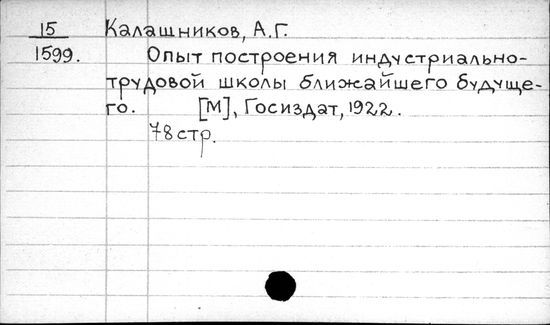 15 Калашников, А.Г.
1599. Опыт построения индустриально-
трудовой школы ближайшего будуще-
го. [М], Госиздат, 1922.
78 стр.